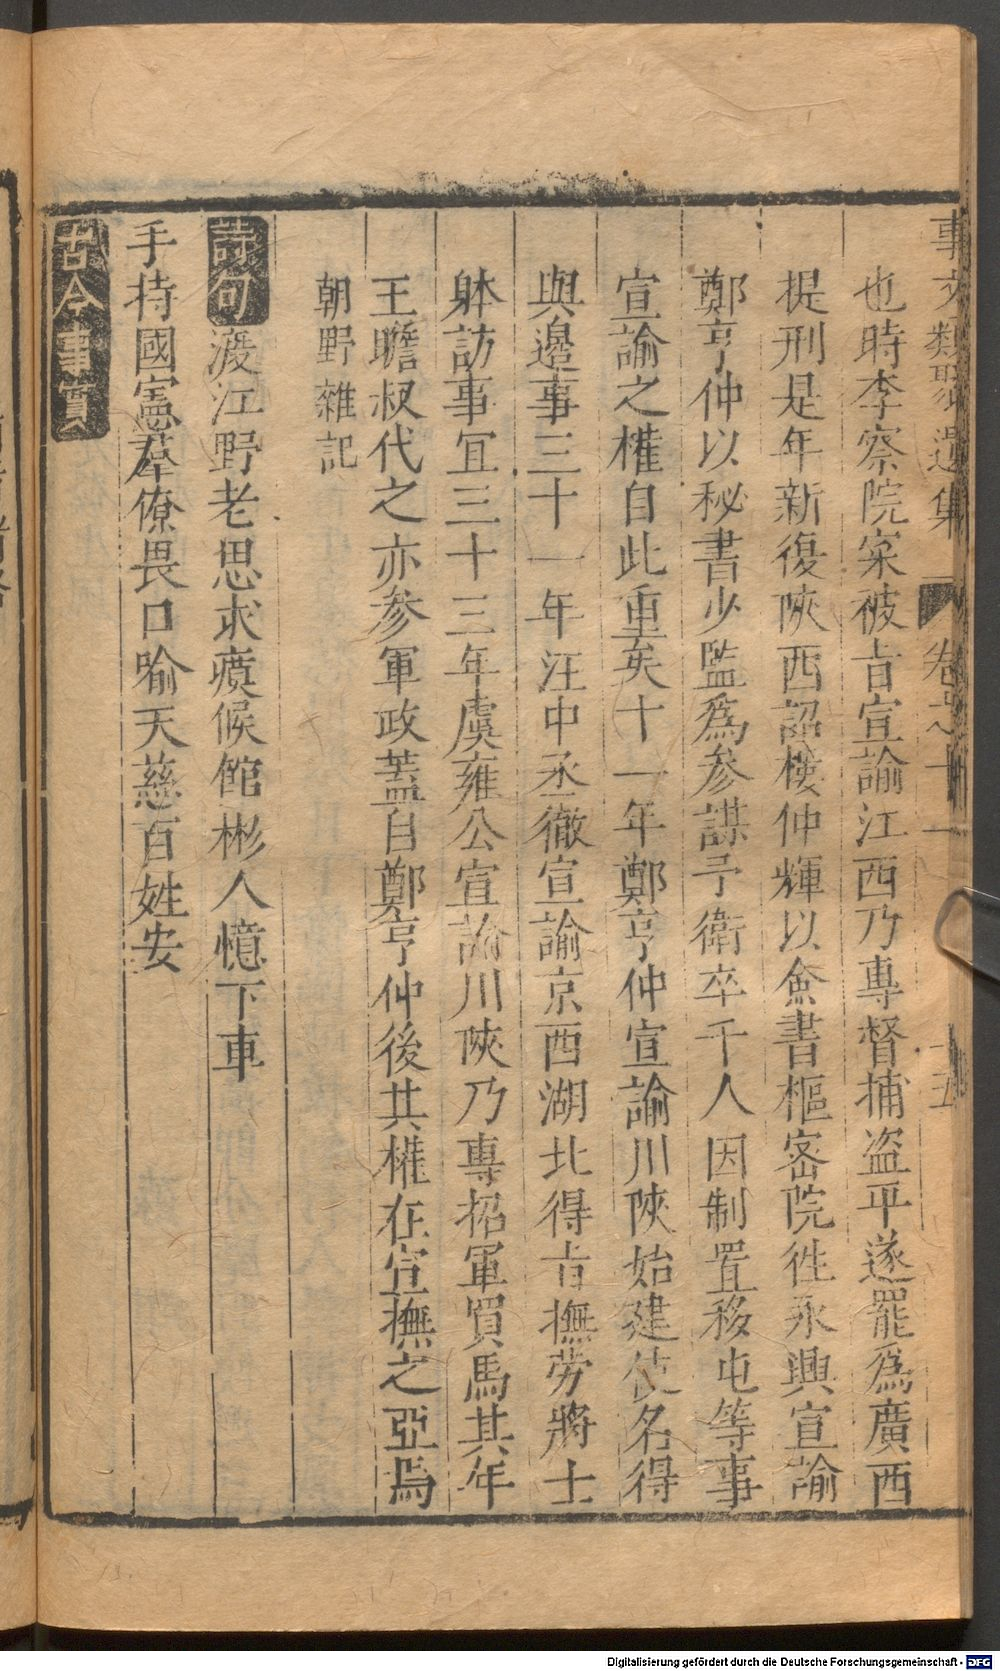 事文類聚遺集 卷之十一 十五
也時李察院寀被㫖宣諭江西乃專督捕盗平遂罷爲廣西
提刑是年新復陜西詔樓仲輝以僉書樞密院徃永興宣諭
鄭亨仲以秘書少監爲参謀予衛卒千人因制置移屯等事
宣諭之權自此重矣十一年鄭亨仲宣諭川陜始建使名得
與邉事三十一年汪中丞徹宣諭京西湖北得㫖撫劳將士
躰訪事冝三十三年虞雍公宣諭川陜乃專招軍買馬其年
王瞻叔代之亦参軍政蓋自鄭亨仲後其權在宣撫之亞焉
朝野雜記
詩句 渡江野老思求瘼候館彬人憶下車
手持國憲羣僚畏口喻天慈百姓安
古今事實
Digitalisierung gefördert durch die Deutsche Forschungsgemeinschaft - DFG